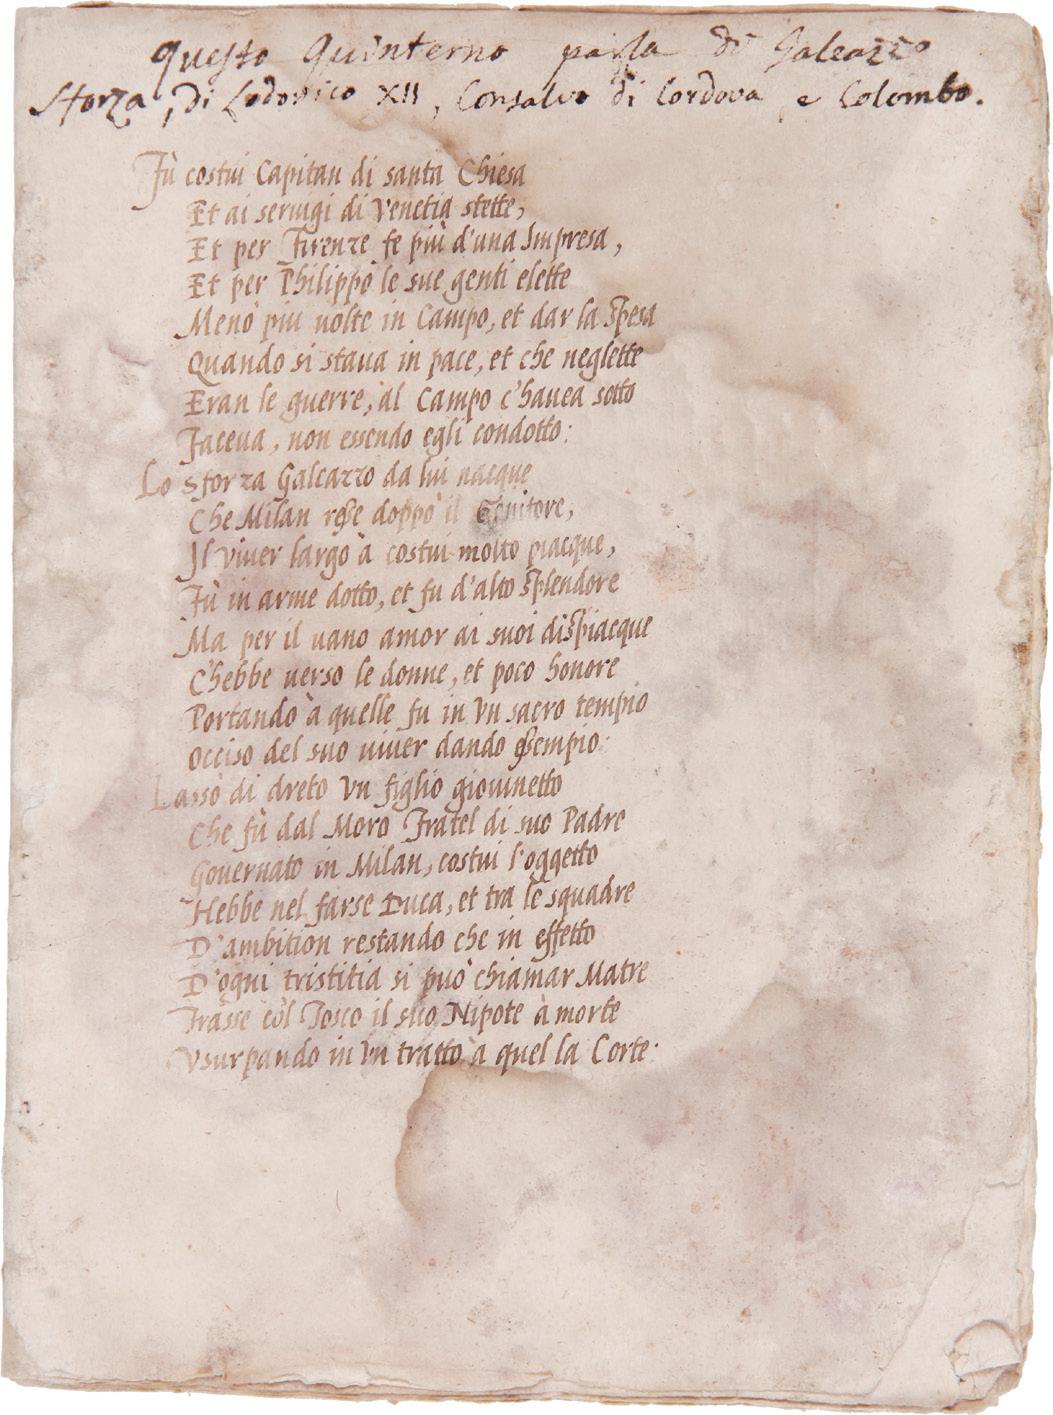 Questo Quinterno parla di Galeazzo
Sforza, di Lodovico XII, Consalvo di Cordova e Colombo.
Fù costui Capitan di santa Chiesa
Et ai seruigi di Venetia stette,
Et per Firenze fe più d'una Impresa,
Et per Philippo le sue genti elette
Menò più uolte in Campo, et dar la Spesa
Quando si staua in pace, et che neglette
Eran le guerre, al Campo c'hauea sotto
Faceua, non essendo egli condotto:
Lo Sforza Galeazzo da lui nacque
Che Milan resse doppò il Genitore,
Il viuer largo à costui molto piacque,
Fù in arme dotto, et fu d'alto Splendore
Ma per il uano amor ai suoi dispiacque
C'hebbe uerso le donne, et poco honore
Portando à quelle fu in vn sacro tempio
Occiso del suo uiuer dando essempio:
Lassò di dreto vn figlio giouinetto
Che fù dal Moro Fratel di suo Padre
Gouernato in Milan, costui l'oggetto
Hebbe nel farse Duca, et tra le squadre
D'ambition restando che in effetto
D'ogni tristitia si può chiamar Matre
Trasse còl Tosco il suo Nipote à morte
Vsurpando in vn tratto à quel la Corte: